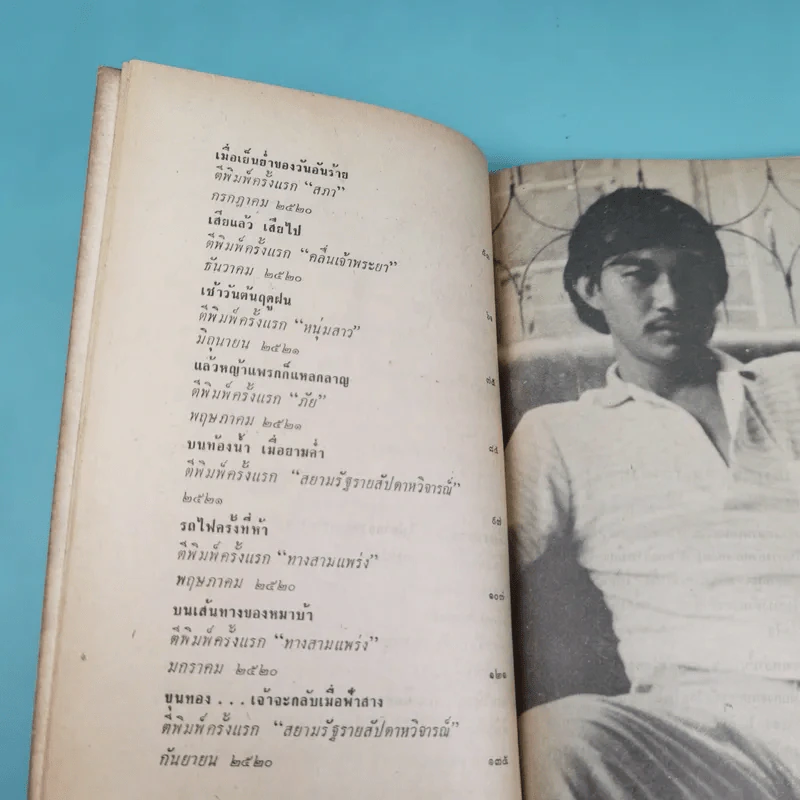 เมื่อเย็นย่ำของวันอันร้าย
ตีพิมพ์ครั้งแรก “สภา”
กรกฎาคม ๒๕๒๐
เสียแล้ว เสียไป
ตีพิมพ์ครั้งแรก “คลื่นเจ้าพระยา”
ธันวาคม ๒๕๒๐
เช้าวันต้นฤดูฝน
ตีพิมพ์ครั้งแรก “หนุ่มสาว”
มิถุนายน ๒๕๒๑
แล้วหญ้าแพรกก็แหลกลาญ ๗๕
ตีพิมพ์ครั้งแรก “ภัย”
พฤษภาคม ๒๕๒๑
บนท้องน้ำ เมื่อยามค่ำ ๘๕
ตีพิมพ์ครั้งแรก “สยามรัฐรายสัปดาหวิจารณ์”
๒๕๒๑
รถไฟครั้งที่ห้า ๙๗
ตีพิมพ์ครั้งแรก “ทางสามแพร่ง”
พฤษภาคม ๒๕๒๐
บนเส้นทางของหมาบ้า ๑๐๗
ตีพิมพ์ครั้งแรก “ทางสามแพร่ง”
มกราคม ๒๕๒๐ ๑๒๑
ขุนทอง . . . เจ้าจะกลับเมื่อฟ้าสาง
ตีพิมพ์ครั้งแรก “สยามรัฐรายสัปดาหวิจารณ์”
กันยายน ๒๕๒๐ ๑๓๕